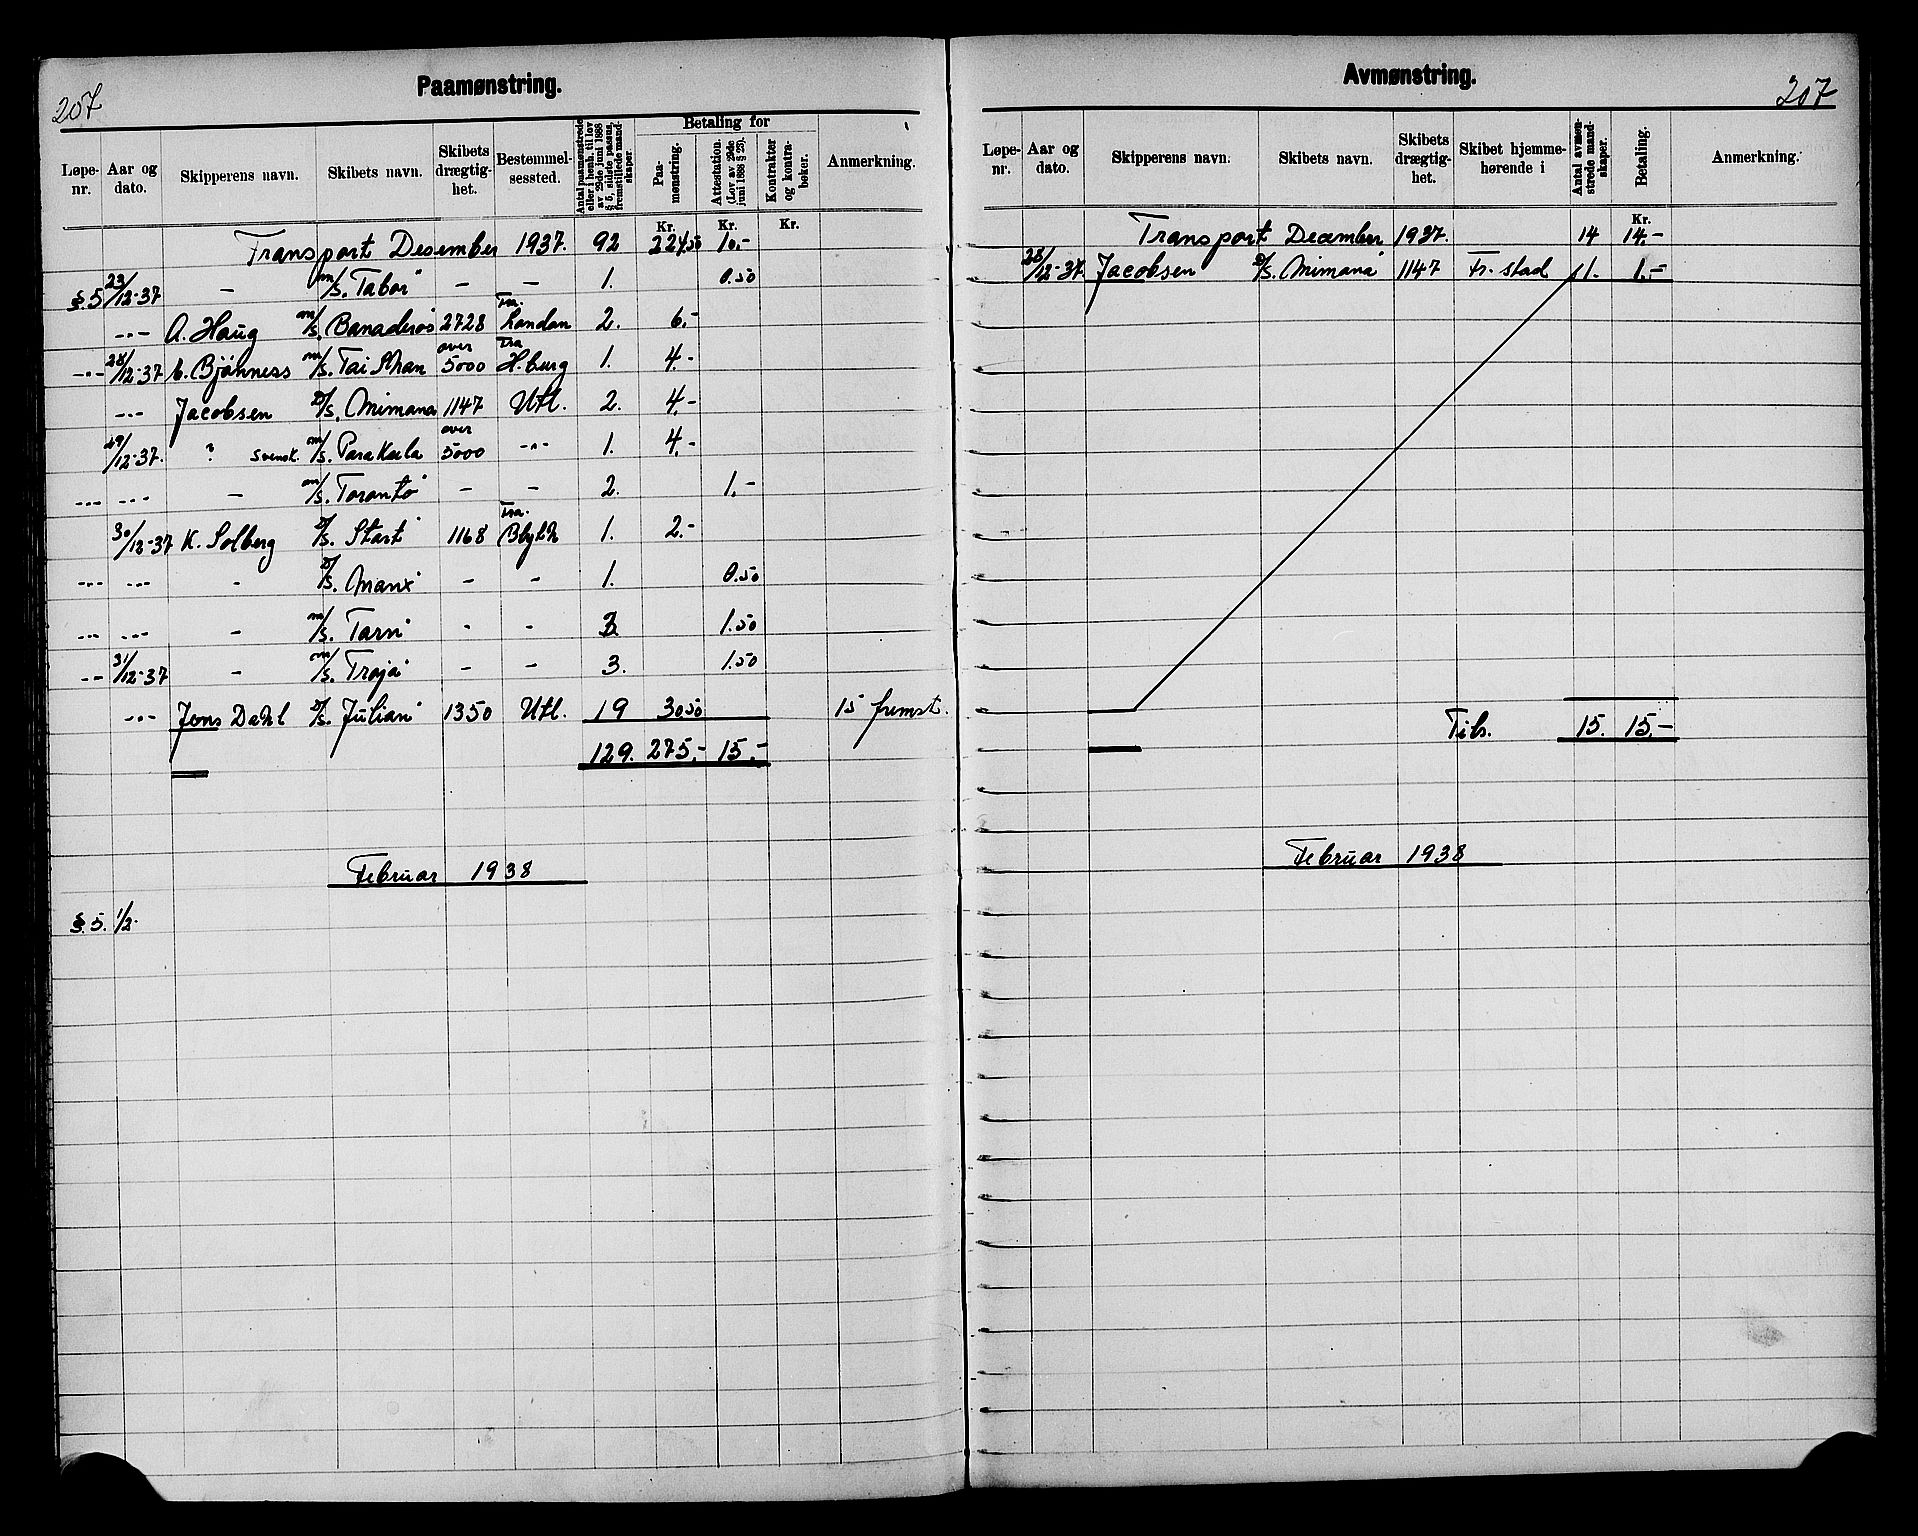 207
Paamønstring.
Løpe-nr. Aar og dato. Skipperens navn. Skibets navn. Skibets drægtig-het. Bestemmel-sessted. Antal paamønstrede eller i henh. til lov av 29de juni 1888 § 5, sidste passus, fremstillede mand-skaper. Betaling for Paa-mønstring. Attestation. (Lov av 29de juni 1888 § 23). Kontrakter og kontra-bøker. Anmerkning.
Kr. Kr. Kr.
Transport Desember 1937. 92 224.50 10.-
§.5 23/12-37 - m/s. Tabor - - 1. 0.50
-"- A. Haug m/s. Banaderos 2728 Tra. London 2. 6.-
-"- 28/12-37 C. Bjønness m/s. Tai Shan over 5000 Tra H.burg 1. 4.-
-"- Jacobsen D/s. Mimona 1147 Utl. 2. 4.-
29/12-37. ? svensk. m/s. Parakoola over 5000 -"- 1. 4.-
-"- -"- - m/s. Toronto - - 2. 1.-
30/12-37 K. Solberg D/s. Start 1168 Tra. Blyth 1. 2.-
-"- -"- - D/s. Manx - - 1. 0.50
-"- -"- - m/s. Tarn - - 3 1.50
-"- 31/12-37 - m/s. Troja - - 3. 1.50
-"- Jens Dahl D/s. Julian 1350 Utl. 19 30.50 15 fremst.
129. 275.- 15.-
Februar 1938
§.5. 1/2.
207
Avmønstring.
Løpe-nr. Aar og dato. Skipperens navn. Skibets navn. Skibets drægtig-het. Skibet hjemme-hørende i Antal avmøn-strede mand-skaper. Betaling. Anmerkning.
Kr.
Transport December 1937. 14 14.-
28/12-37. Jacobsen D/s. Mimona 1147 Fr. stad 1. 1.-
Tils. 15. 15.-
Februar 1938